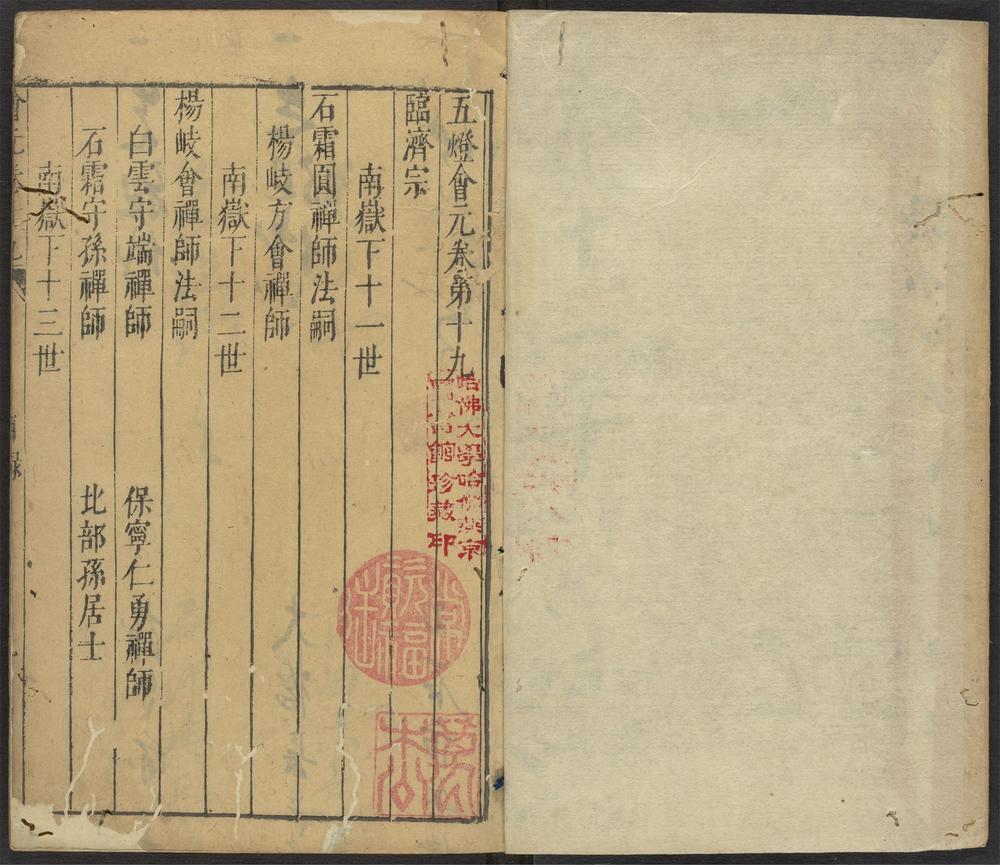 五燈會元卷第十九
臨濟宗
南嶽下十一世
石霜圓禪師法嗣
楊岐方會禪師
南嶽下十二世
楊岐會禪師法嗣
白雲守端禪師 保寧仁勇禪師
石霜守孫禪師 北部孫居士
南嶽下十三世
哈佛大學哈佛燕京
館珍藏印